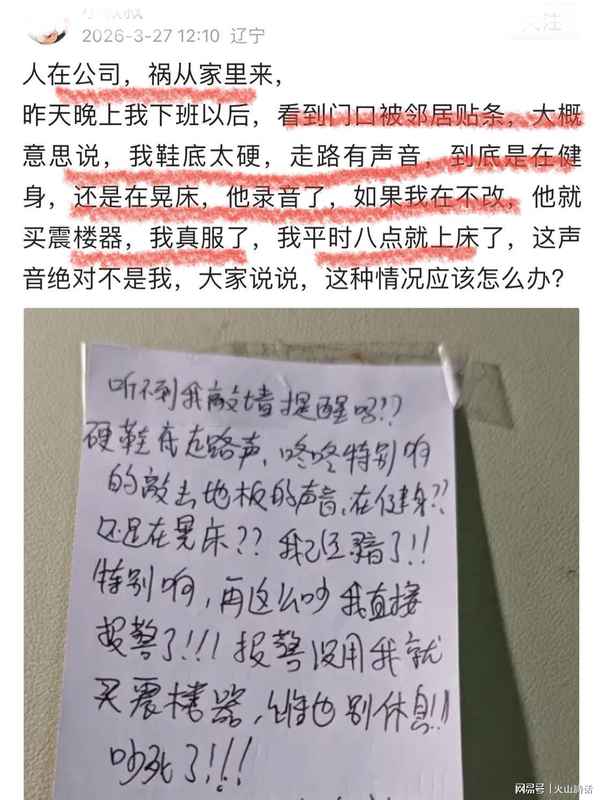 2026-3-27 12:10 辽宁
关注
人在公司，祸从家里来，
昨天晚上我下班以后，看到门口被邻居贴条，大概
意思说，我鞋底太硬，走路有声音，到底是在健
身，还是在晃床，他录音了，如果我在不改，他就
买震楼器，我真服了，我平时八点就上床了，这声
音绝对不是我，大家说说，这种情况应该怎么办？
听不到我敲墙提醒吗！？
硬鞋底走路声，咚咚特别响
的敲击地板的声音，在健身？？
还是在晃床？？我已经录了！！
特别响，再这么吵我直接
报警了！！！报警没用我就
买震楼器，谁也别休息！！
吵死了！！！
网易号 | 火山詩话